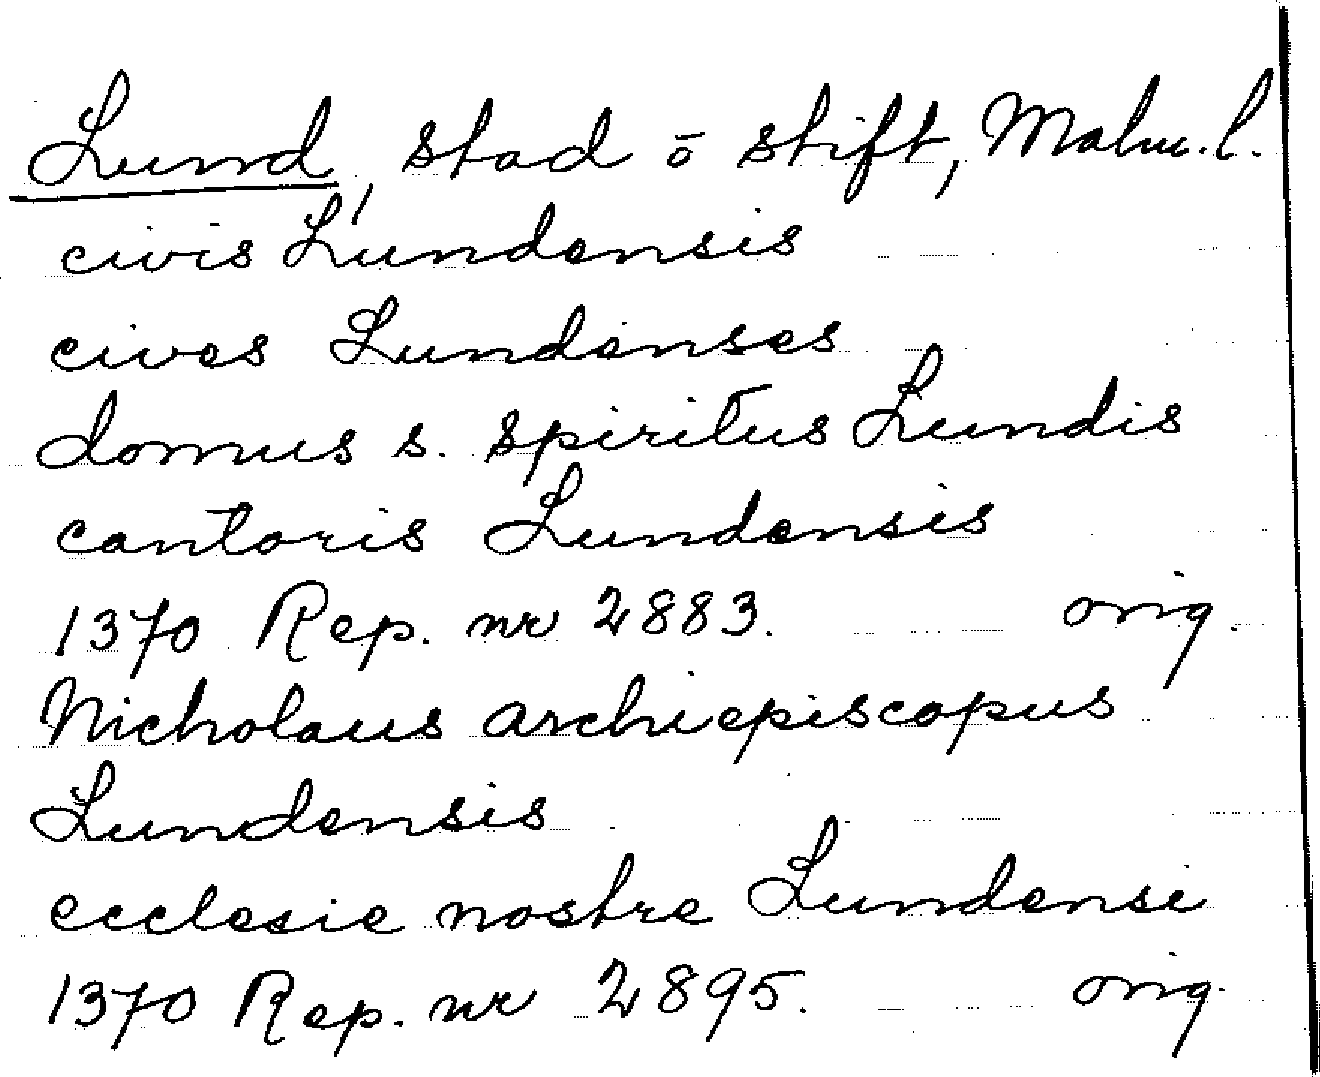 Lund, stad ō stift, Malm.l.
civis Lundensis
cives Lundenses
domus s. spiritus Lundis
cantoris Lundensis
1370 Rep. nr 2883. orig.
Nicholaus archiepiscopus
Lundensis
ecclesie nostre Lundensi
1370 Rep. nr 2895. orig.